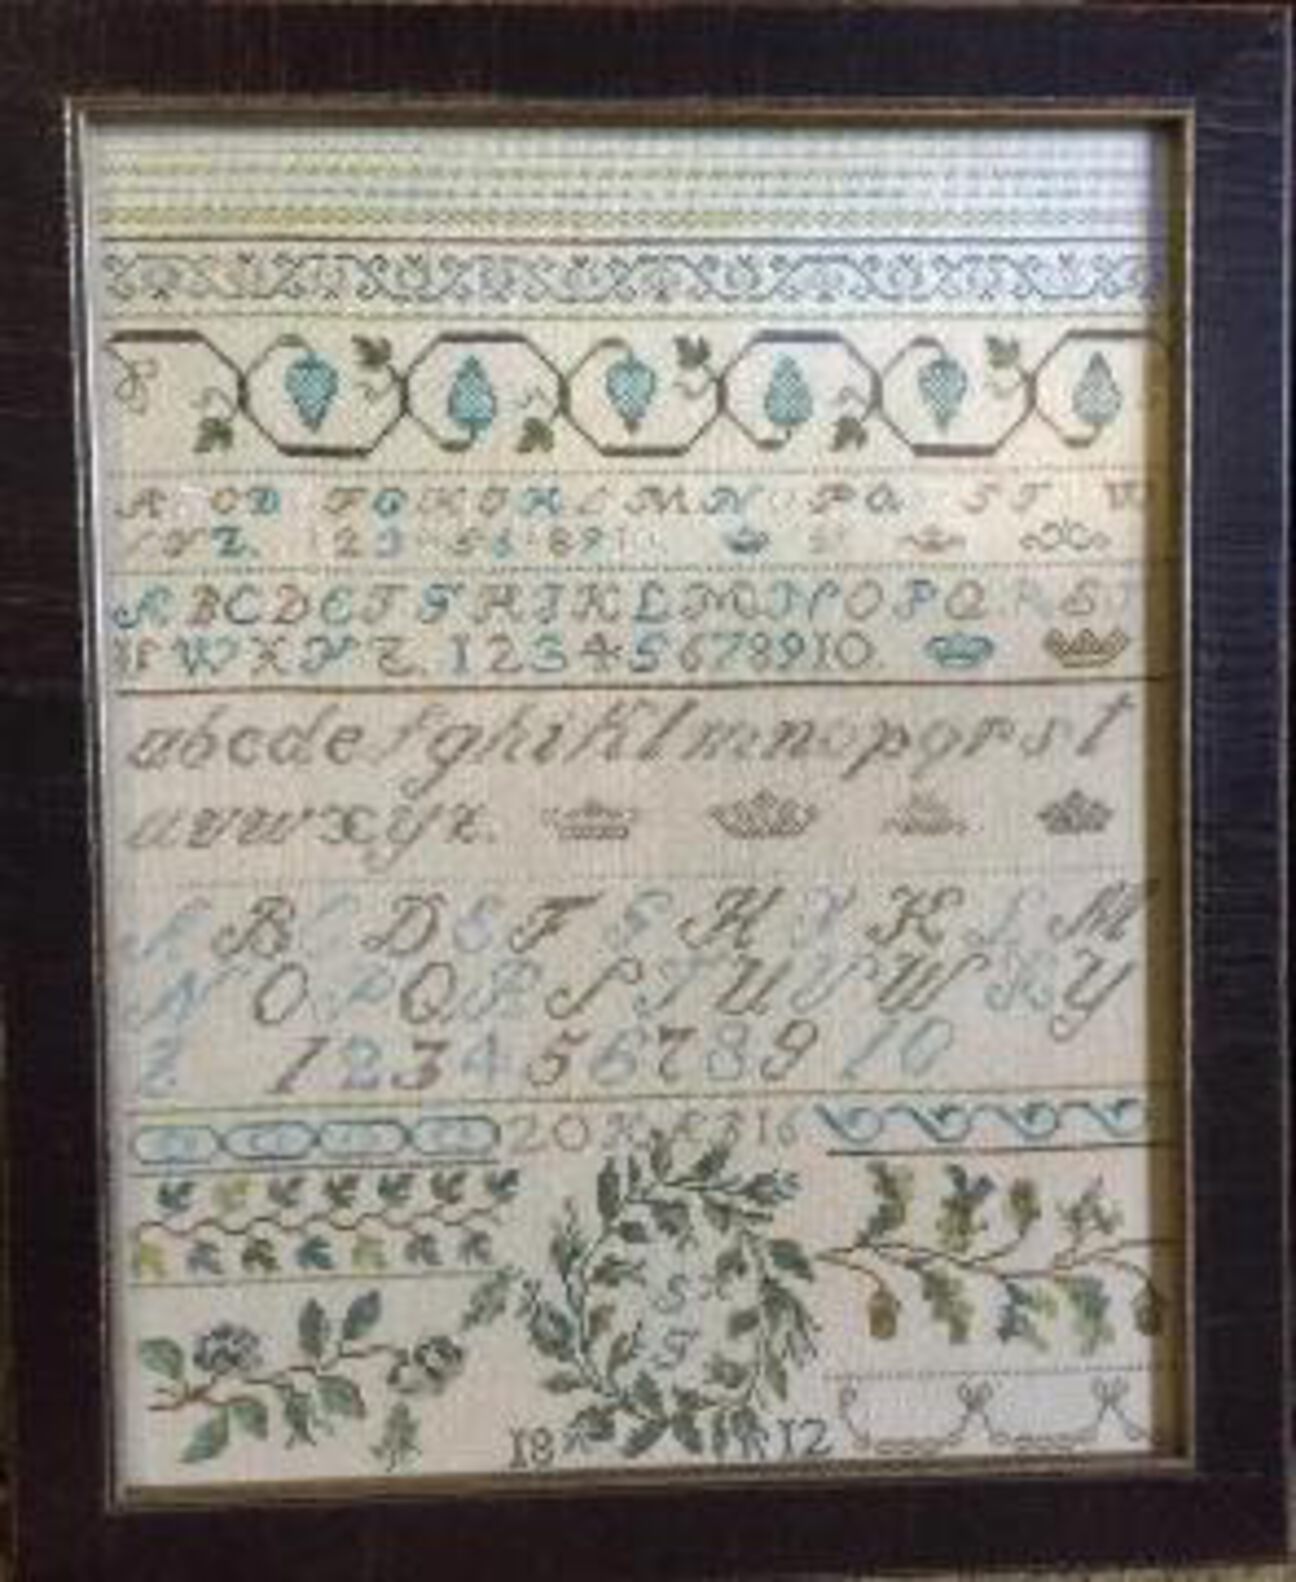 A C D F G H I K L M N P Q S T W
Y Z. 1 2 3 5 6 8 9 1
A B C D E F G H I K L M N O P Q R S T
V W X Y Z. 1 2 3 4 5 6 7 8 9 10.
a b c d e f g h i k l m n o p q r s t
u v w x y z.
A B C D E F G H I K L M
N O P Q R S T U V W X Y
Z 1 2 3 4 5 6 7 8 9 10
20 16
S
18 12